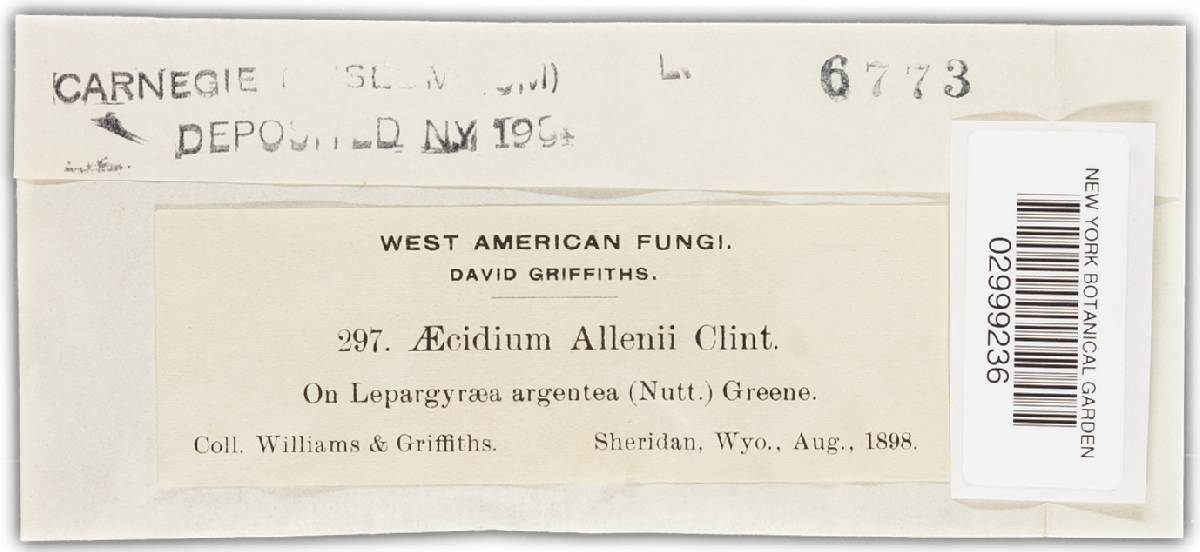 CARNEGIE L. 6773
DEPOSITED NY
WEST AMERICAN FUNGI.
DAVID GRIFFITHS.
297. Æcidium Allenii Clint.
On Lepargyræa argentea (Nutt.) Greene.
Coll. Williams & Griffiths. Sheridan, Wyo., Aug., 1898.
NEW YORK BOTANICAL GARDEN
02999236